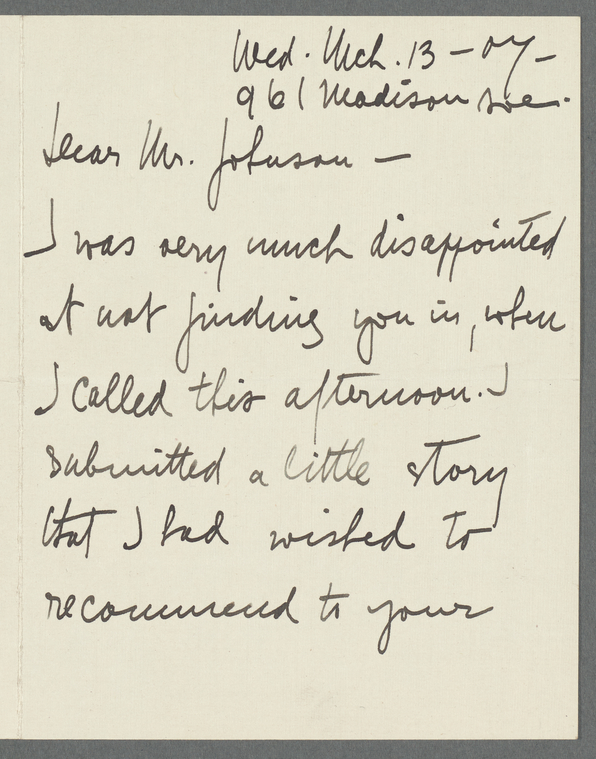 Wed. Mch. 13 – 07 –
961 Madison Ave.
Dear Mr. Johnson –
I was very much disappointed
at not finding you in, when
I called this afternoon. I
submitted a little story
that I had wished to
recommend to your